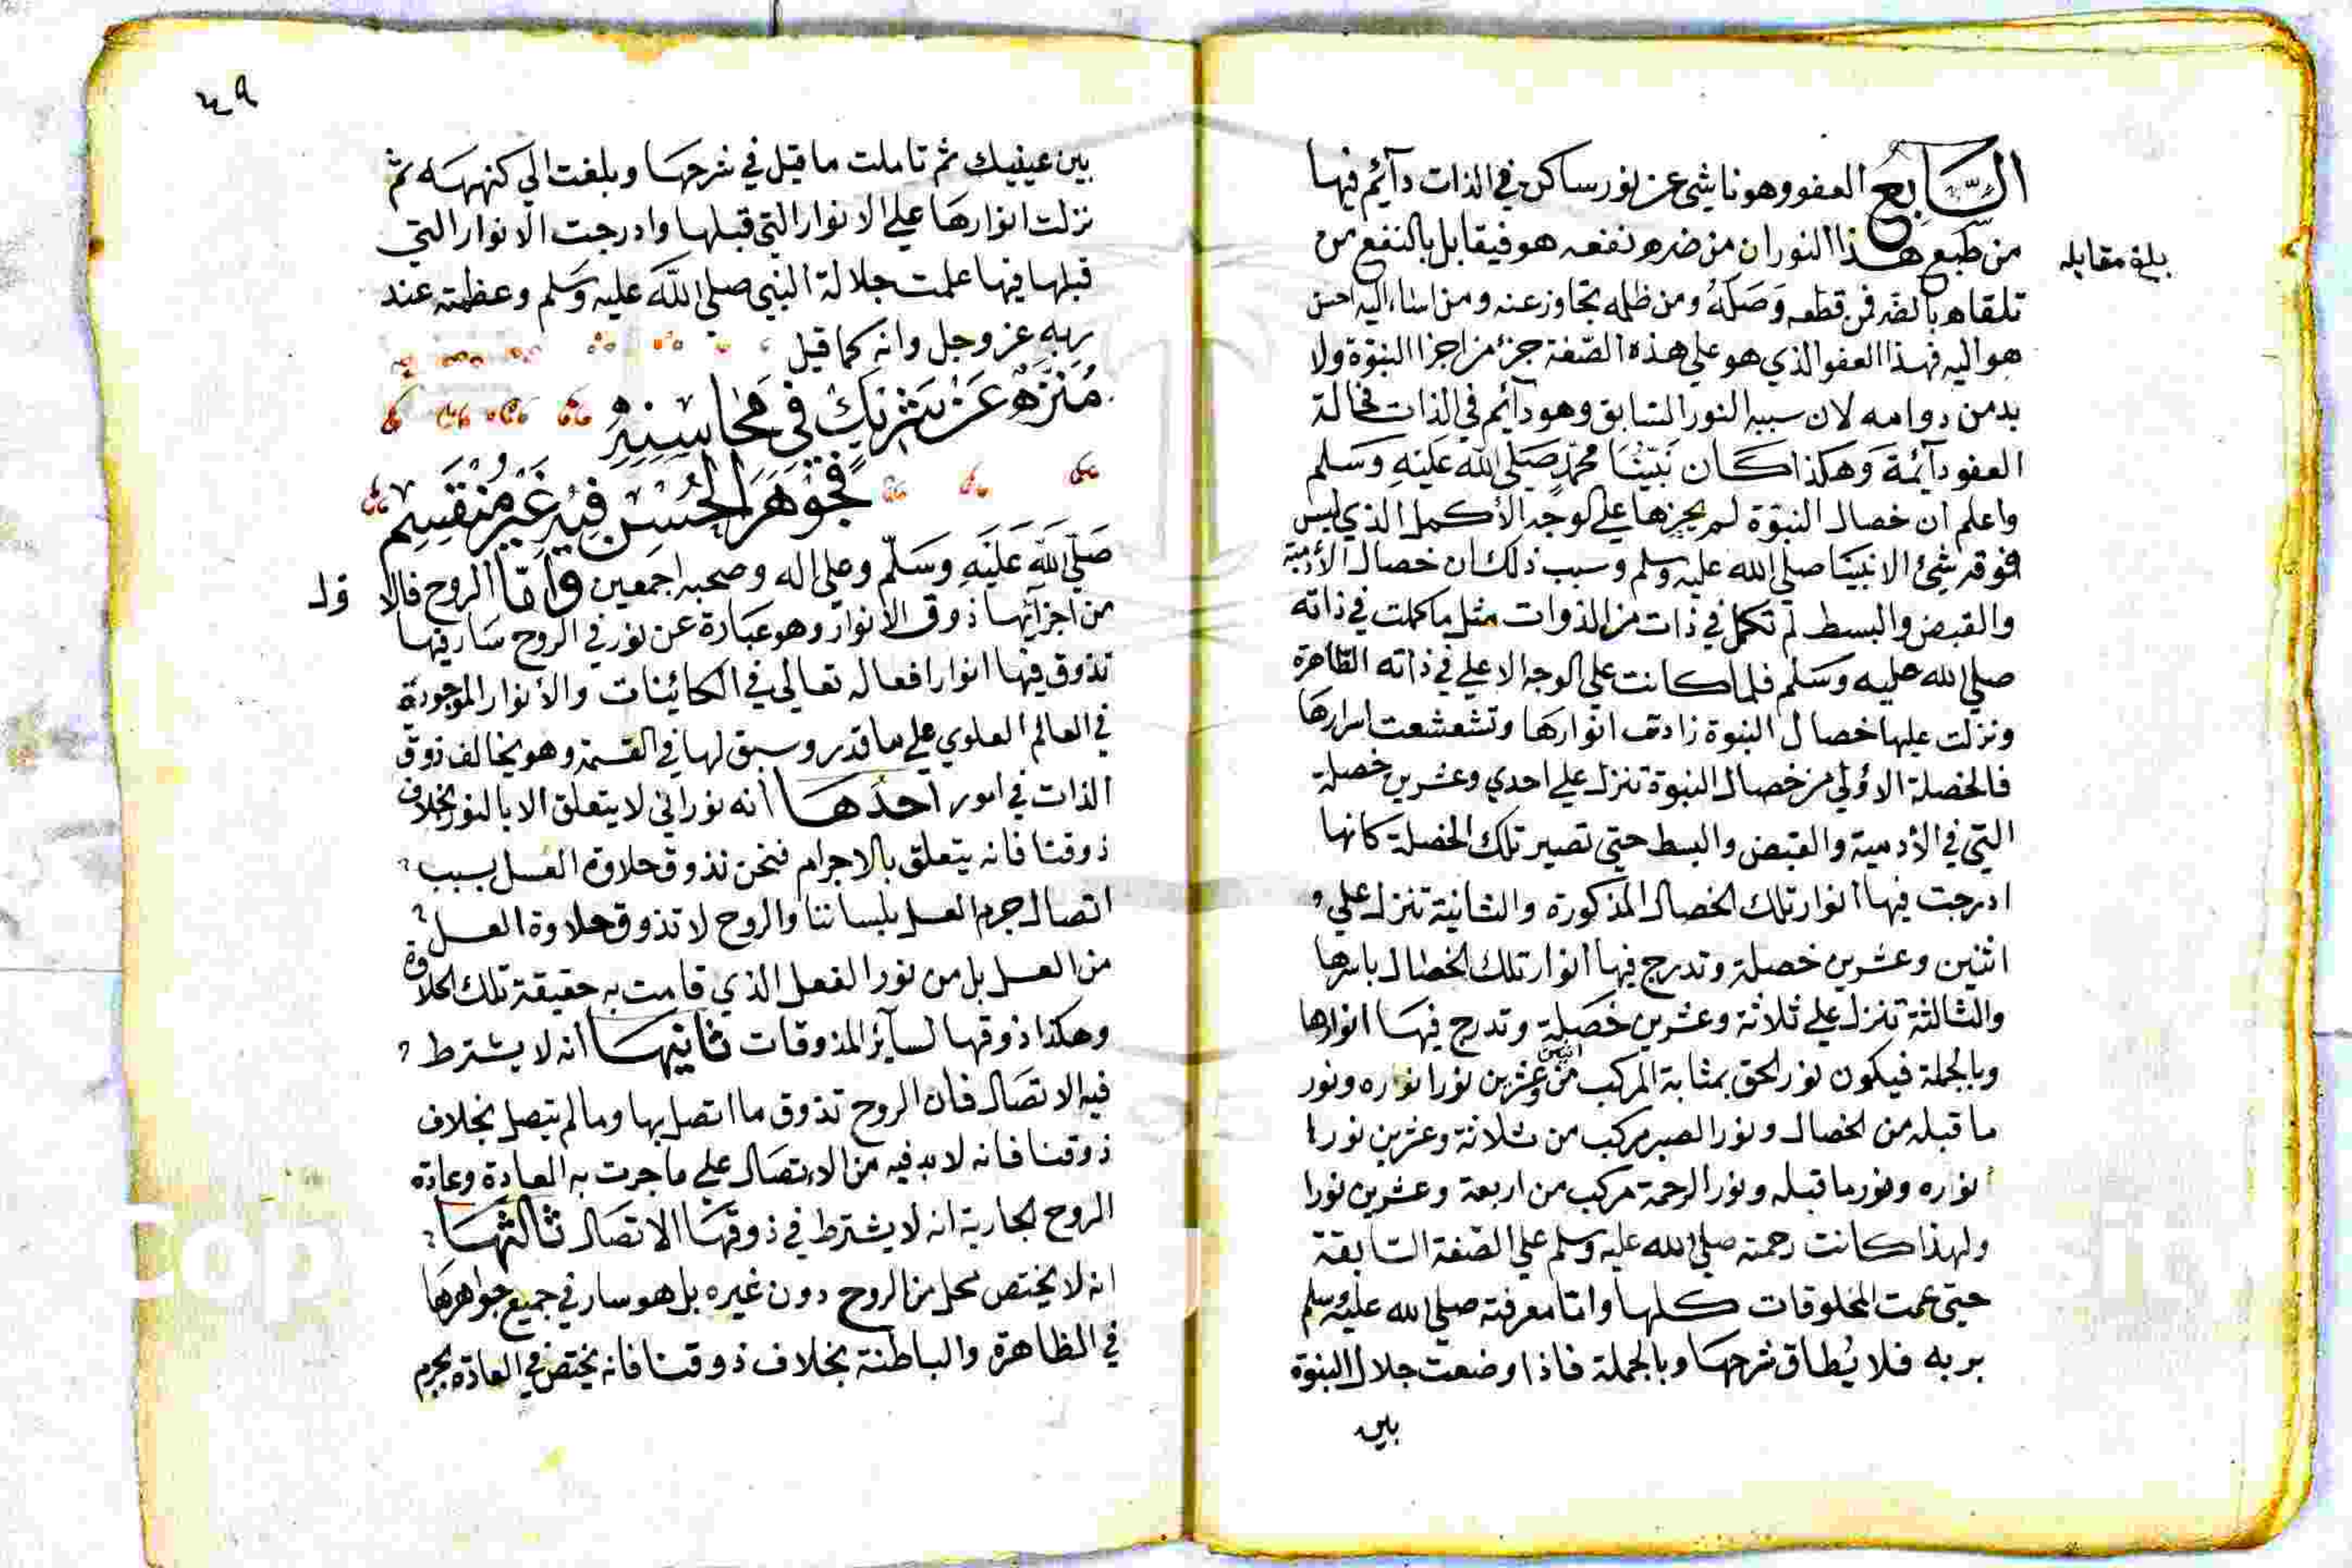 السَّابِعُ العفو وهو ناشئ عن نور ساكن في الذات دآئم فيها
من طبع هذا النور ان من ضره نفعه هو فيقابل بالنفع من
بلغ مقابله
تلقاه بالضر فمن قطعه وَصَلَهُ ومن ظلمه تجاوز عنه ومن اساء اليه احسن
هو اليه فهذا العفو الذي هو علي هذه الصّفة جزء من اجزا النبوّة ولا
بد من دوامه لان سببه النور السّابق وهو دآئم في الذات فحالة
العفو دآئمة وَهكذا كان نَبيّنُا محمّد صَلي الله عَليْهِ وَسَلم
واعلم ان خصال النبوّة لم يحزها علي الوجه الأكمل الذي ليس
فوقه شئ الا نبيّنا صلي الله عليه وسلم وسبب ذلك ان خصال الأدمية
والقبض والبسط لم تكمل في ذات من الذوات مثل ما كملت في ذاته
صلي الله عليه وسَلم فلما كانت علي الوجه الاعلي في ذاته الطّاهرة
ونزلت عليها خصال النبوة زادت انوارها وتشعشعت اسرارها
فالخصلة الأولي من خصال النبوة تنزل علي احدي وعشرين خصلة
التي في الأدمية والقبض والبسط حتي تصير تلك الخصلة كانها
ادرجت فيها انوار تلك الخصال المذكورة والثانية تنزل علي
اثنين وعشرين خصلة وتدرج فيها انوار تلك الخصال باسرها
والثالثة تنزل علي ثلاثة وعشرين خصَلة وتدرج فيها انوارها
وبالجملة فيكون نور الحق بمثابة المركب من اثنين وعشرين نورا نواره ونور
ما قبله من الخصال ونور الصبر مركب من ثلاثة وعشرين نورا
نواره ونور ما قبله ونور الرحمة مركب من اربعة وعشرين نورا
ولهذا كانت رحمته صلي الله عليه وسلم علي الصّفة السّابقة
حتي عمت المخلوقات كلها وامّا معرفته صلي الله عليه وسلم
بربه فلا يُطاق شرحها وبالجملة فاذا وضعت جلال النبوّة
بين
٤٩
بين عينيك ثم تاملت ما قيل في شرحها وبلغت الي كنهه ثم
نزلت انوارها علي الانوار التي قبلها وادرجت الانوار التي
قبلها فيها علمت جلالة النبي صلي اللّه عليه وسَلم وعظمته عند
ربه عز وجل وانه كما قيل
مُنَزَّهٌ عَنْ شَرِيْكٍ فِي مَحَاسِنِهِ
فَجَوْهَرُ الحُسْنِ فِيْهِ غَيْرُ مُنْقَسِمِ
صَلّي اللّه عَلَيهِ وَسَلّم وعلي اله وصحبه اجمعين وامّا الروح فالا
ول
من اجزآئها ذوق الأنوار وهو عبَارة عن نور في الروح سَار فيها
تذوق فيها انوار افعاله تعالي في الكائينات والأنوار الموجودة
في العالم العلوي علي ما قدر وسبق لها في القسمة وهو يخالف ذوق
الذات في امور احدُهَا انه نوراني لا يتعلق الا بالنور بخلاف
ذوقنا فانه يتعلق بالاجرام فنحن نذوق حلاوة العسل بسبب
اتصال جرم العسل بلساننا والروح لا تذوق حلاوة العسل
من العسل بل من نور الفعل الذي قامت به حقيقة تلك الحلاوة
وهكذا ذوقها لسآئر المذوقات ثانيهَا انه لا يشترط
فيه الاتصَال فان الروح تذوق ما اتصل بها وما لم يتصل بخلاف
ذوقنا فانه لابد فيه من الاتصال علي ما جرت به العادة وعادة
الروح الجارية انه لا يشترط في ذوقهَا الاتصال ثالثهَا
انه لا يختص بمحل من الروح دون غيره بل هو سار في جميع جواهرها
في الظاهرة والباطنة بخلاف ذوقنا فانه يختص في العادة بجرم